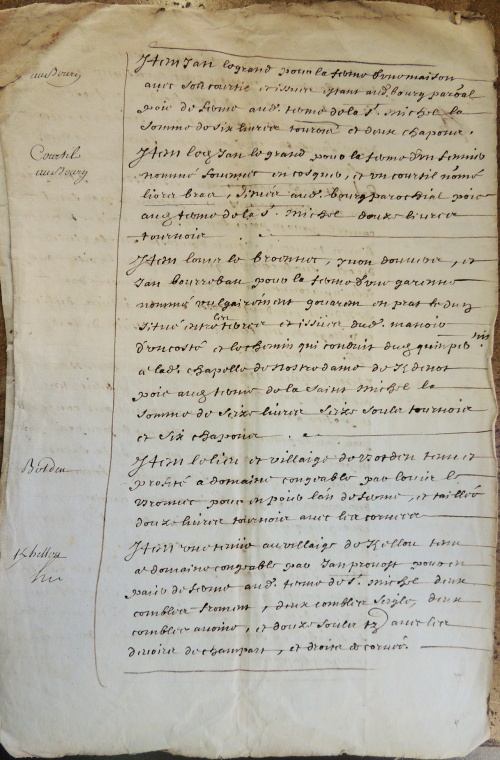 au Bourg
Item Jan legrand pour la ferme d'une maison
avec son courtil et issue estant aud. bourg paroal
paie de ferme aud. terme de la St. michel la
somme de six livres tournois et deux chapons.
Courtil
au Bourg
Item led. Jan le grand pour la ferme d'un
nommé en et un courtil nomé
liors bras, situez aud. bourg parochial paie
aud. terme de la St. michel douze livres
tournois
Item louis le broennec, yvon et
Jan pour la ferme d'une garenne
nommé vulgairement gouarem en prat
situé entre terres et issues dud. manoir
d'un costé et le chemin qui conduit dud.
a lad. chapelle de nostre dame de
paie aud. terme de la saint michel la
somme de seize livres seize souls tournois
et six chapons.
Item le lieu et villaige de tenu et
profité a domaine congeable par louis le
pour en paier l'an de ferme, et taillée
douze livres tournois avec les corvées
Item une tenue au villaige de Kellou tenu
a domaine congeable par Jan provost pour en
paier de ferme aud. terme de St. michel deux
combles froment, deux combles seigle, deux
combles avoine, et douze souls tz avec les
devoirs de champart, et droits de corvée.